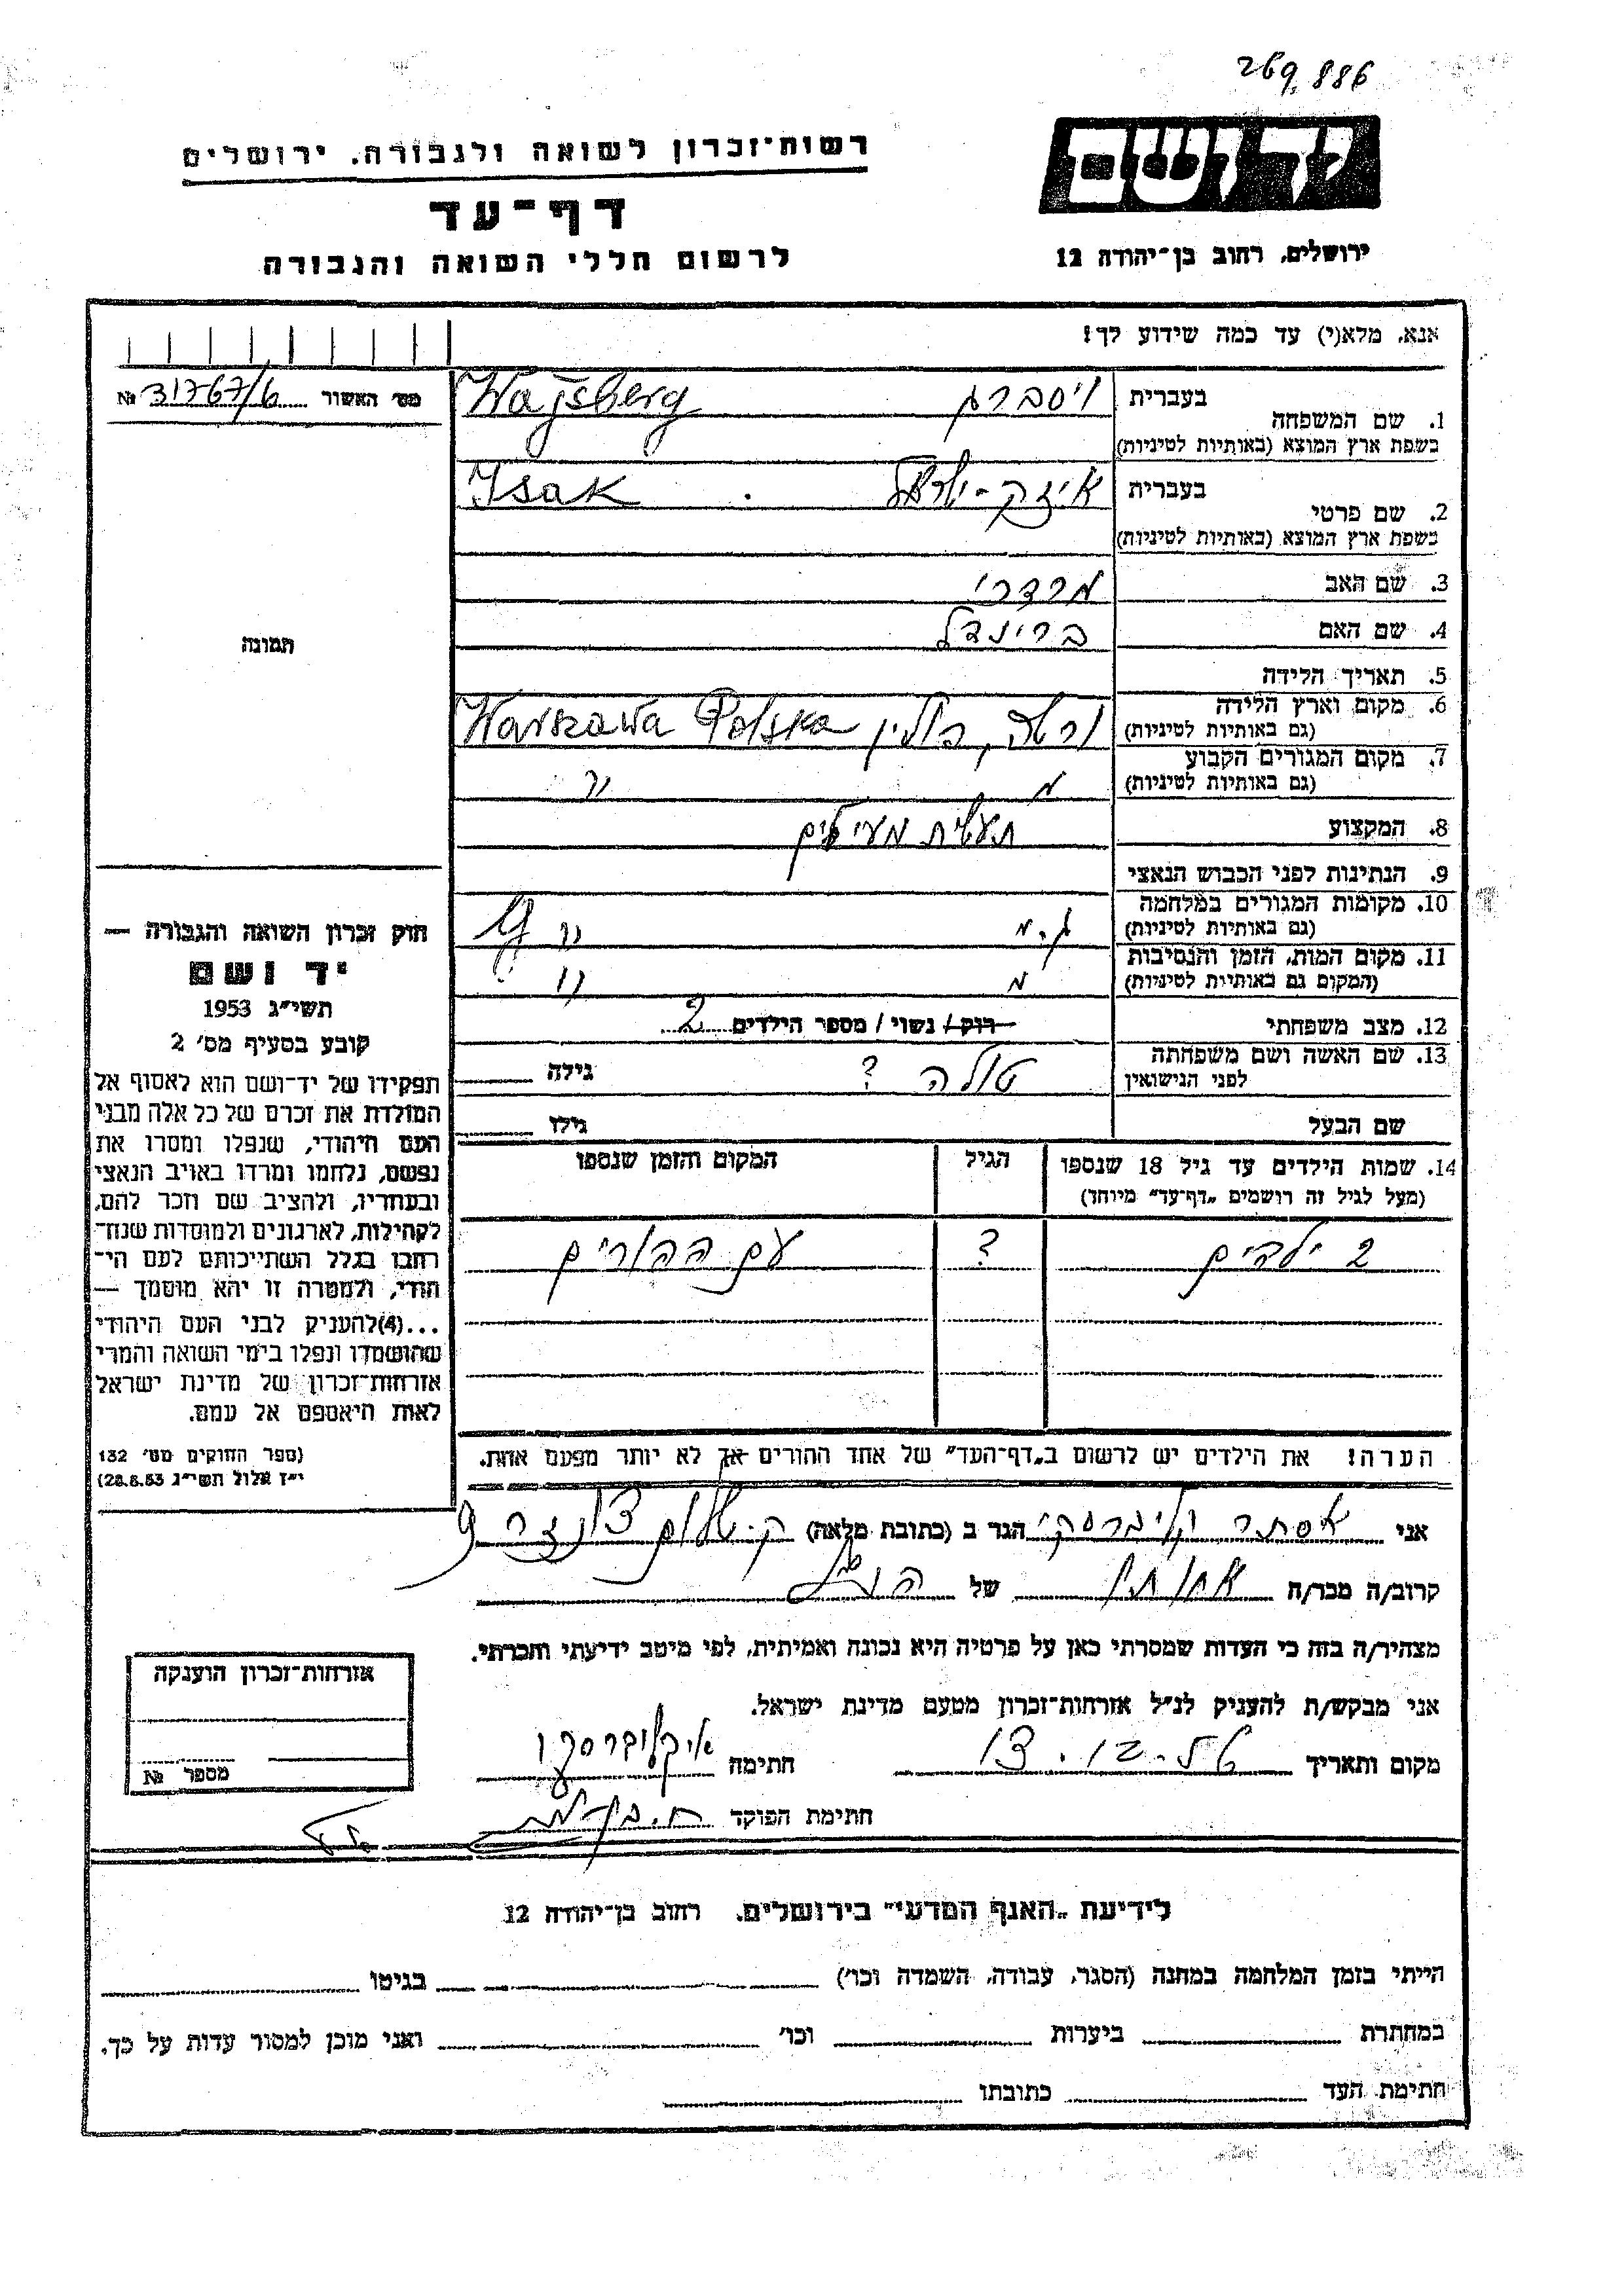 269,886
יד ושם
רשות־זכרון לשואה ולגבורה. ירושלים
דף־עד
לרשום חללי השואה והגבורה
ירושלים, רחוב בן־יהודה 12
אנא, מלא(י) עד כמה שידוע לך!
מס׳ האשור № 31767/6
1. שם המשפחה בעברית ויסברג Wajsberg
בשפת ארץ המוצא (באותיות לטיניות)
2. שם פרטי בעברית איזק-ישראל Isak
בשפת ארץ המוצא (באותיות לטיניות)
3. שם האב מרדכי
4. שם האם בריינדל
תמונה
5. תאריך הלידה
6. מקום וארץ הלידה ורשה, פולין Warszawa Polska
(גם באותיות לטיניות)
7. מקום המגורים הקבוע
(גם באותיות לטיניות)
8. המקצוע תעשית מעילים
9. הנתינות לפני הכבוש הנאצי
10. מקומות המגורים במלחמה
(גם באותיות לטיניות)
11. מקום המות, הזמן והנסיבות
(המקום גם באותיות לטיניות)
12. מצב משפחתי רוק / נשוי / מספר הילדים 2
13. שם האשה ושם משפחתה לפני הנישואין טולה ? גילה
שם הבעל גילו
14. שמות הילדים עד גיל 18 שנספו הגיל המקום והזמן שנספו
(מעל לגיל זה רושמים „דף־עד״ מיוחד)
2 ילדים ? עם ההורים
הערה! את הילדים יש לרשום ב„דף־העד״ של אחד ההורים אך לא יותר מפעם אחת.
חוק זכרון השואה והגבורה —
יד ושם
תשי״ג 1953
קובע בסעיף מס׳ 2
תפקידו של יד־ושם הוא לאסוף אל
המולדת את זכרם של כל אלה מבני
העם היהודי, שנפלו ומסרו את
נפשם, נלחמו ומרדו באויב הנאצי
ובעוזריו, ולהציב שם וזכר להם,
לקהילות, לארגונים ולמוסדות שנח־
רבו בגלל השתייכותם לעם הי־
הודי, ולמטרה זו יהא מוסמך —
...(4)להעניק לבני העם היהודי
שהושמדו ונפלו בימי השואה והמרי
אזרחות־זכרון של מדינת ישראל
לאות היאספם אל עמם.
(ספר החוקים מס׳ 132
י״ז אלול תשי״ג 28.8.53)
אני אסתר הגר ב (כתובת מלאה) ק. שלום 9
קרוב/ה מכר/ה אחותו של הנ״ל
מצהיר/ה בזה כי העדות שמסרתי כאן על פרטיה היא נכונה ואמיתית, לפי מיטב ידיעתי והכרתי.
אני מבקש/ת להעניק לנ״ל אזרחות־זכרון מטעם מדינת ישראל.
מקום ותאריך חתימה
חתימת הפוקד
אזרחות־זכרון הוענקה
מספר №
לידיעת „האגף המדעי״ בירושלים. רחוב בן־יהודה 12
הייתי בזמן המלחמה במחנה (הסגר, עבודה, השמדה וכו׳) בגיטו
במחתרת ביערות וכו׳ ואני מוכן למסור עדות על כך.
חתימת העד כתובתו